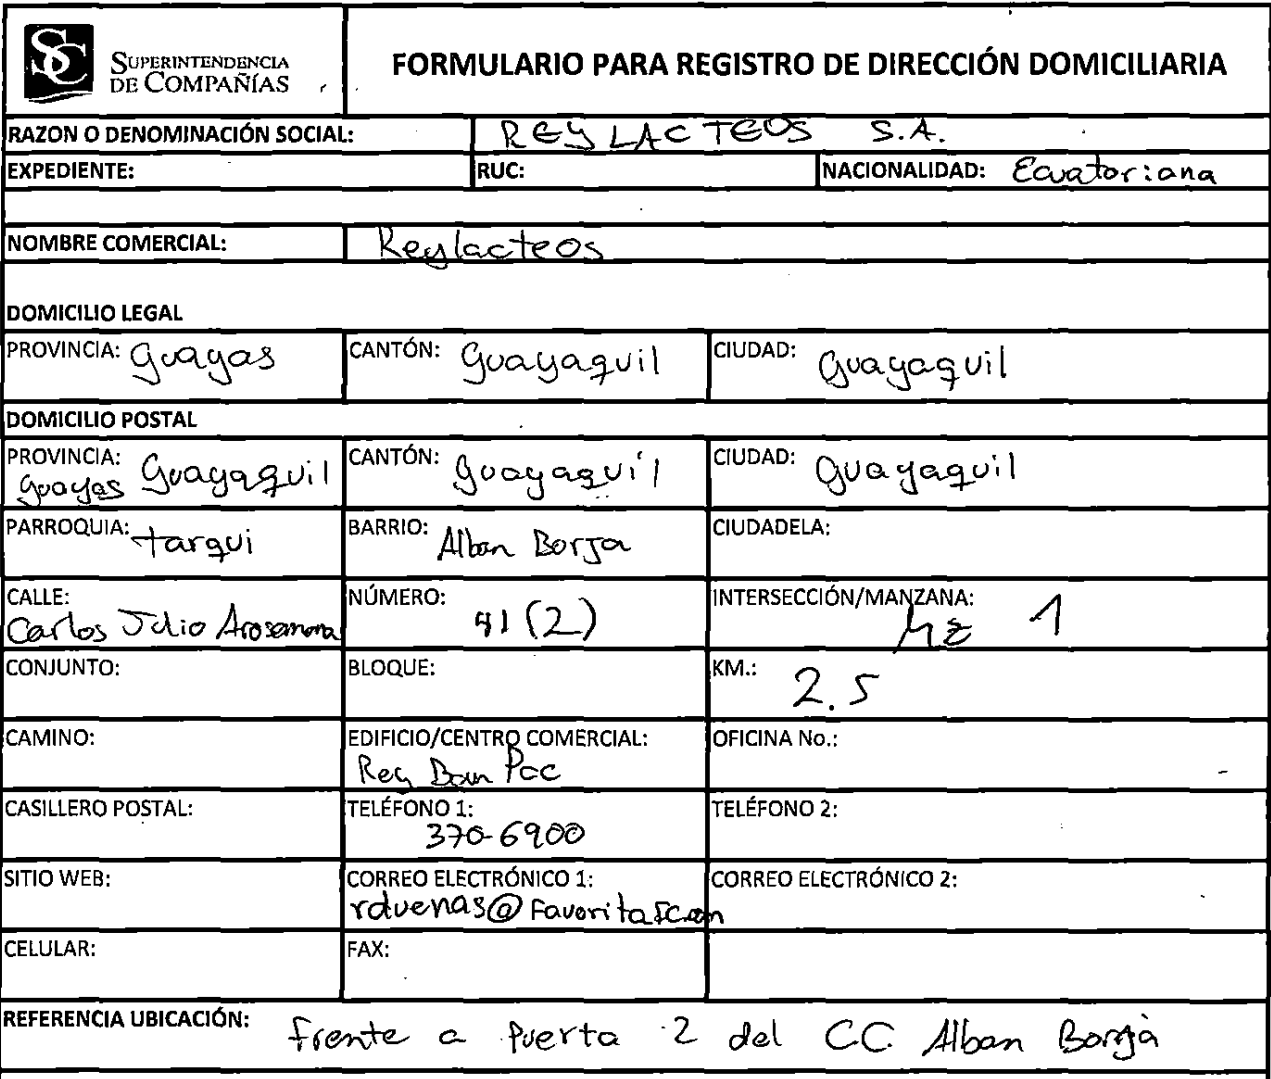 SC SUPERINTENDENCIA
DE COMPAÑÍAS
FORMULARIO PARA REGISTRO DE DIRECCIÓN DOMICILIARIA
RAZON O DENOMINACIÓN SOCIAL: REYLACTEOS S.A.
EXPEDIENTE: RUC: NACIONALIDAD: Ecuatoriana
NOMBRE COMERCIAL: Reylacteos
DOMICILIO LEGAL
PROVINCIA: Guayas CANTÓN: Guayaquil CIUDAD: Guayaquil
DOMICILIO POSTAL
PROVINCIA: Guayas Guayaquil CANTÓN: Guayaquil CIUDAD: Guayaquil
PARROQUIA: tarqui BARRIO: Alban Borja CIUDADELA:
CALLE: NÚMERO: INTERSECCIÓN/MANZANA:
Carlos Julio Arosemena (2) Mz 1
CONJUNTO: BLOQUE: KM.: 2.5
CAMINO: EDIFICIO/CENTRO COMERCIAL: OFICINA No.:
Rey
CASILLERO POSTAL: TELÉFONO 1: TELÉFONO 2:
370-6900
SITIO WEB: CORREO ELECTRÓNICO 1: CORREO ELECTRÓNICO 2:
CELULAR: FAX:
REFERENCIA UBICACIÓN: Frente a Puerta 2 del CC. Alban Borja